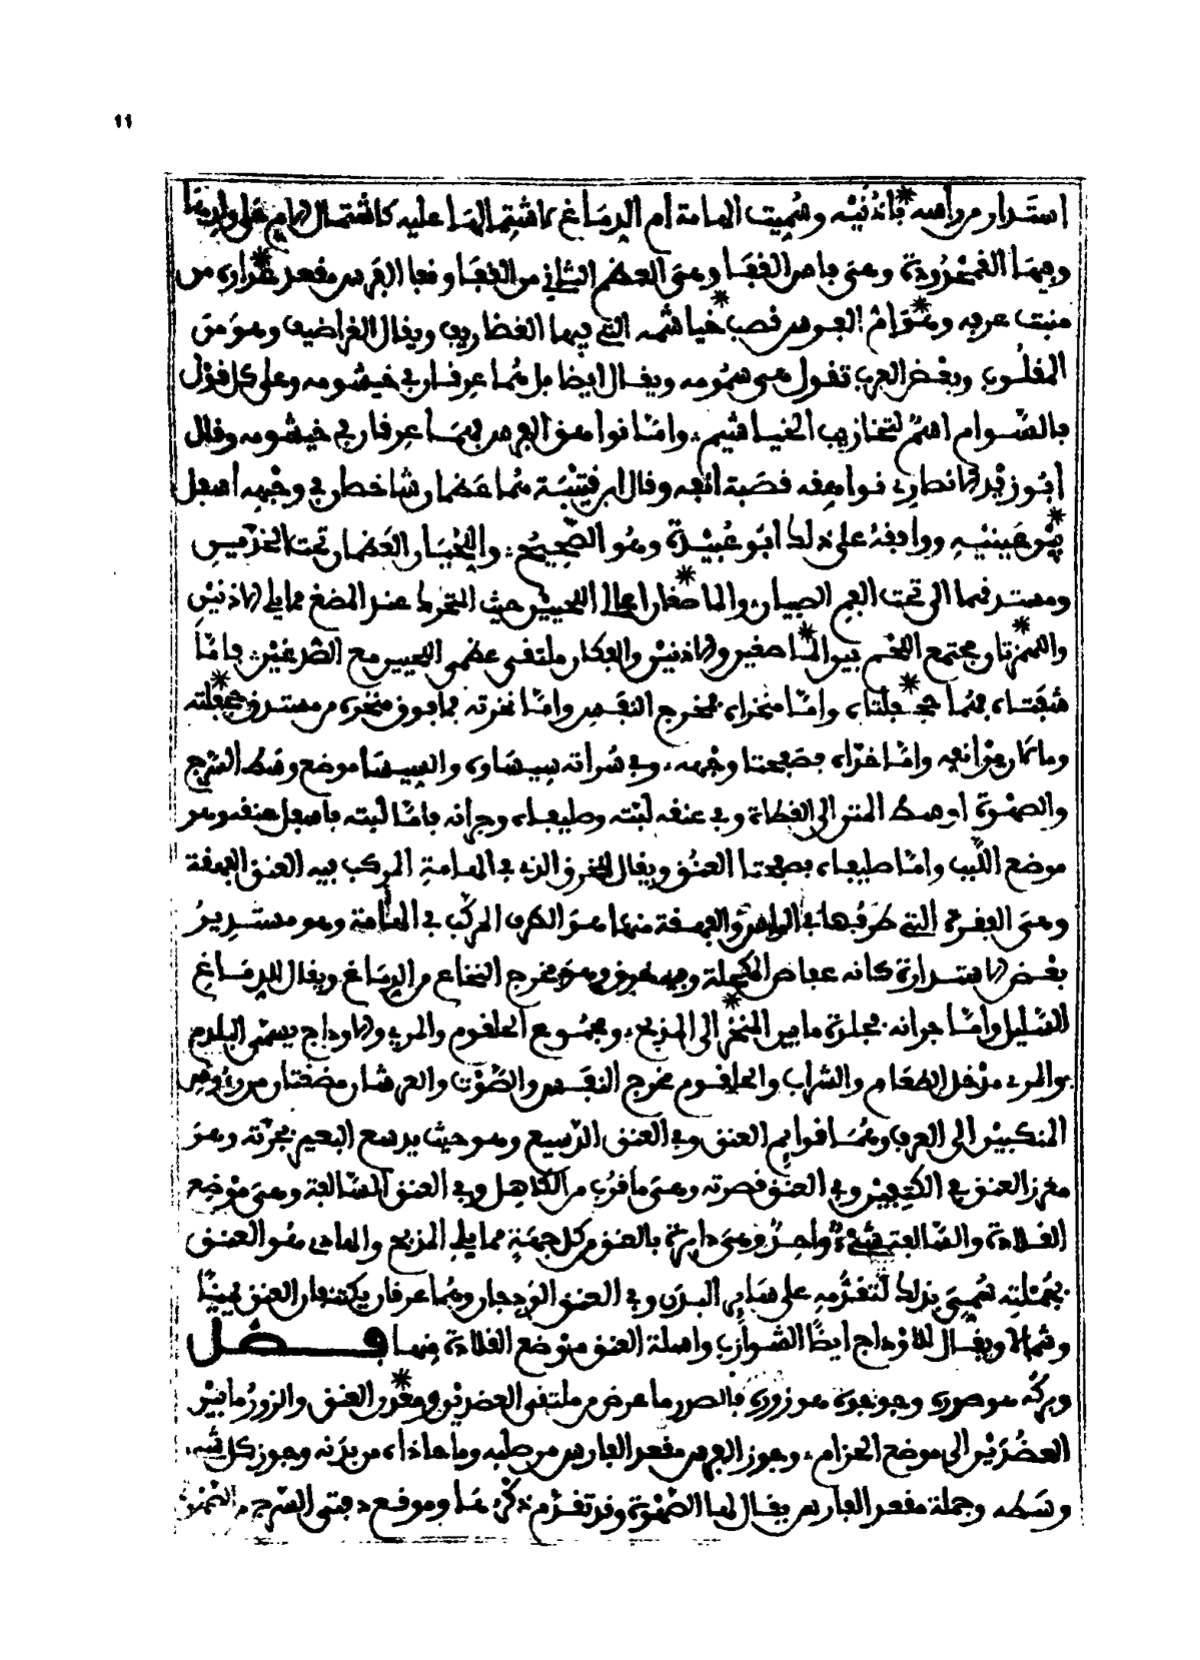 11
استدار من رأسه بأذنيه وسميت الهامة أم الدماغ لاشتمالها عليه كاشتمال الام على ولدها
وفيها القمحدوة وهي فاس القفا وهي العظم الناتئ من القفا وقفا الفرس مقعد عذاره من
منبت عرفه وسوام الفرس قصب خياشمه التي فيها الغضاريف ويقال الغراضيف وهو من
المقلوب وبعض العرب تقول هي سمومه ويقال ايضا بل هما عرقان في خيشومه وعلى كل قول
بالسوام اسم لنخاريب الخياشيم، واما نواهق الفرس فهما عرقان في خيشومه وقال
أبو زيد الانصاري نواهقه قصبة انفه وقال ابن قتيبة هما عظمان شاخصان في وجهه أسفل
من عينيه ووافقه على ذلك ابو عبيدة وهو الصحيح، واللحيان العظمان تحت الخدين
ومستدقهما الى تحت الفم الصبيان، والماضغان أعالي اللحيين حيث التحرك عند المضغ مما يلي الاذنين
واللهزمتان مجتمع اللحم بين الماضغين والاذنين والفكان ملتقى عظمي اللحيين مع الصدغين، فاما
شفتاه فهما جحفلتاه، واما منخراه فمخرج النفس واما نخرته فما فوق منخره من مستدق جحفلته
وما لان من أنفه واما خداه فصفحتا وجهه، وفي سراته سيساؤه والسيساء موضع وسط السرج
والصهوة اوسط المتن الى القطاة وفي عنقه لبته وصليفاه وجرانه فاما لبته فاسفل عنقه وهو
موضع اللبب واما صليفاه فصفحتا العنق ويقال للخرق الذي في الهامة المركب فيه العنق الفهقة
وهي الفقرة التي طرفها في الراس والفهقة منها هو الطرف المركب في الهامة وهو مستدير
بعض الاستدارة كانه عفاص المكحلة ومنه مخرج النخاع من الدماغ ويقال للدماغ
السليل واما جرانه فجلدة ما بين المنحر الى المذبح، ومجموع الحلقوم والمريء والاوداج يسمى البلدم
والمريء مدخل الطعام والشراب والحلقوم مخرج النفس والصوت والعرشان مضغتان من رءوس
المنكبين الى العرف وهما قوايم العنق وفي العنق الدسيع وهو حيث يدسع البعير بجرته وهو
مغرز العنق في الكتفين وفي العنق قصرته وهي ما قرب من الكاهل وفي العنق السالفة وهي موضع
القلادة والسالفة شيء واحد وهي دايرة بالعنق من كل جهة مما يلي المذبح والهادي هو العنق
بجملته سمي بذلك لتقدمه على ساير البدن وفي العنق الودجان وهما عرقان يكتنفان العنق يمينا
وشمالا ويقال للاوداج ايضا الشوارب واسلة العنق موضع القلادة منها فصل
وبركه هو صدره وجوجؤه هو زوره فالصدر ما عرض من ملتقى العضدين ومغرز العنق والزور ما بين
العضدين الى موضع الحزام، وجوز الفرس مقعد الفارس من صلبه وما حاذاه من بدنه وجوز كل شيء
وسطه وجملة مقعد الفارس يقال لها الصهوة وقد تقدم ذكرها وموقع دفتي السرج من